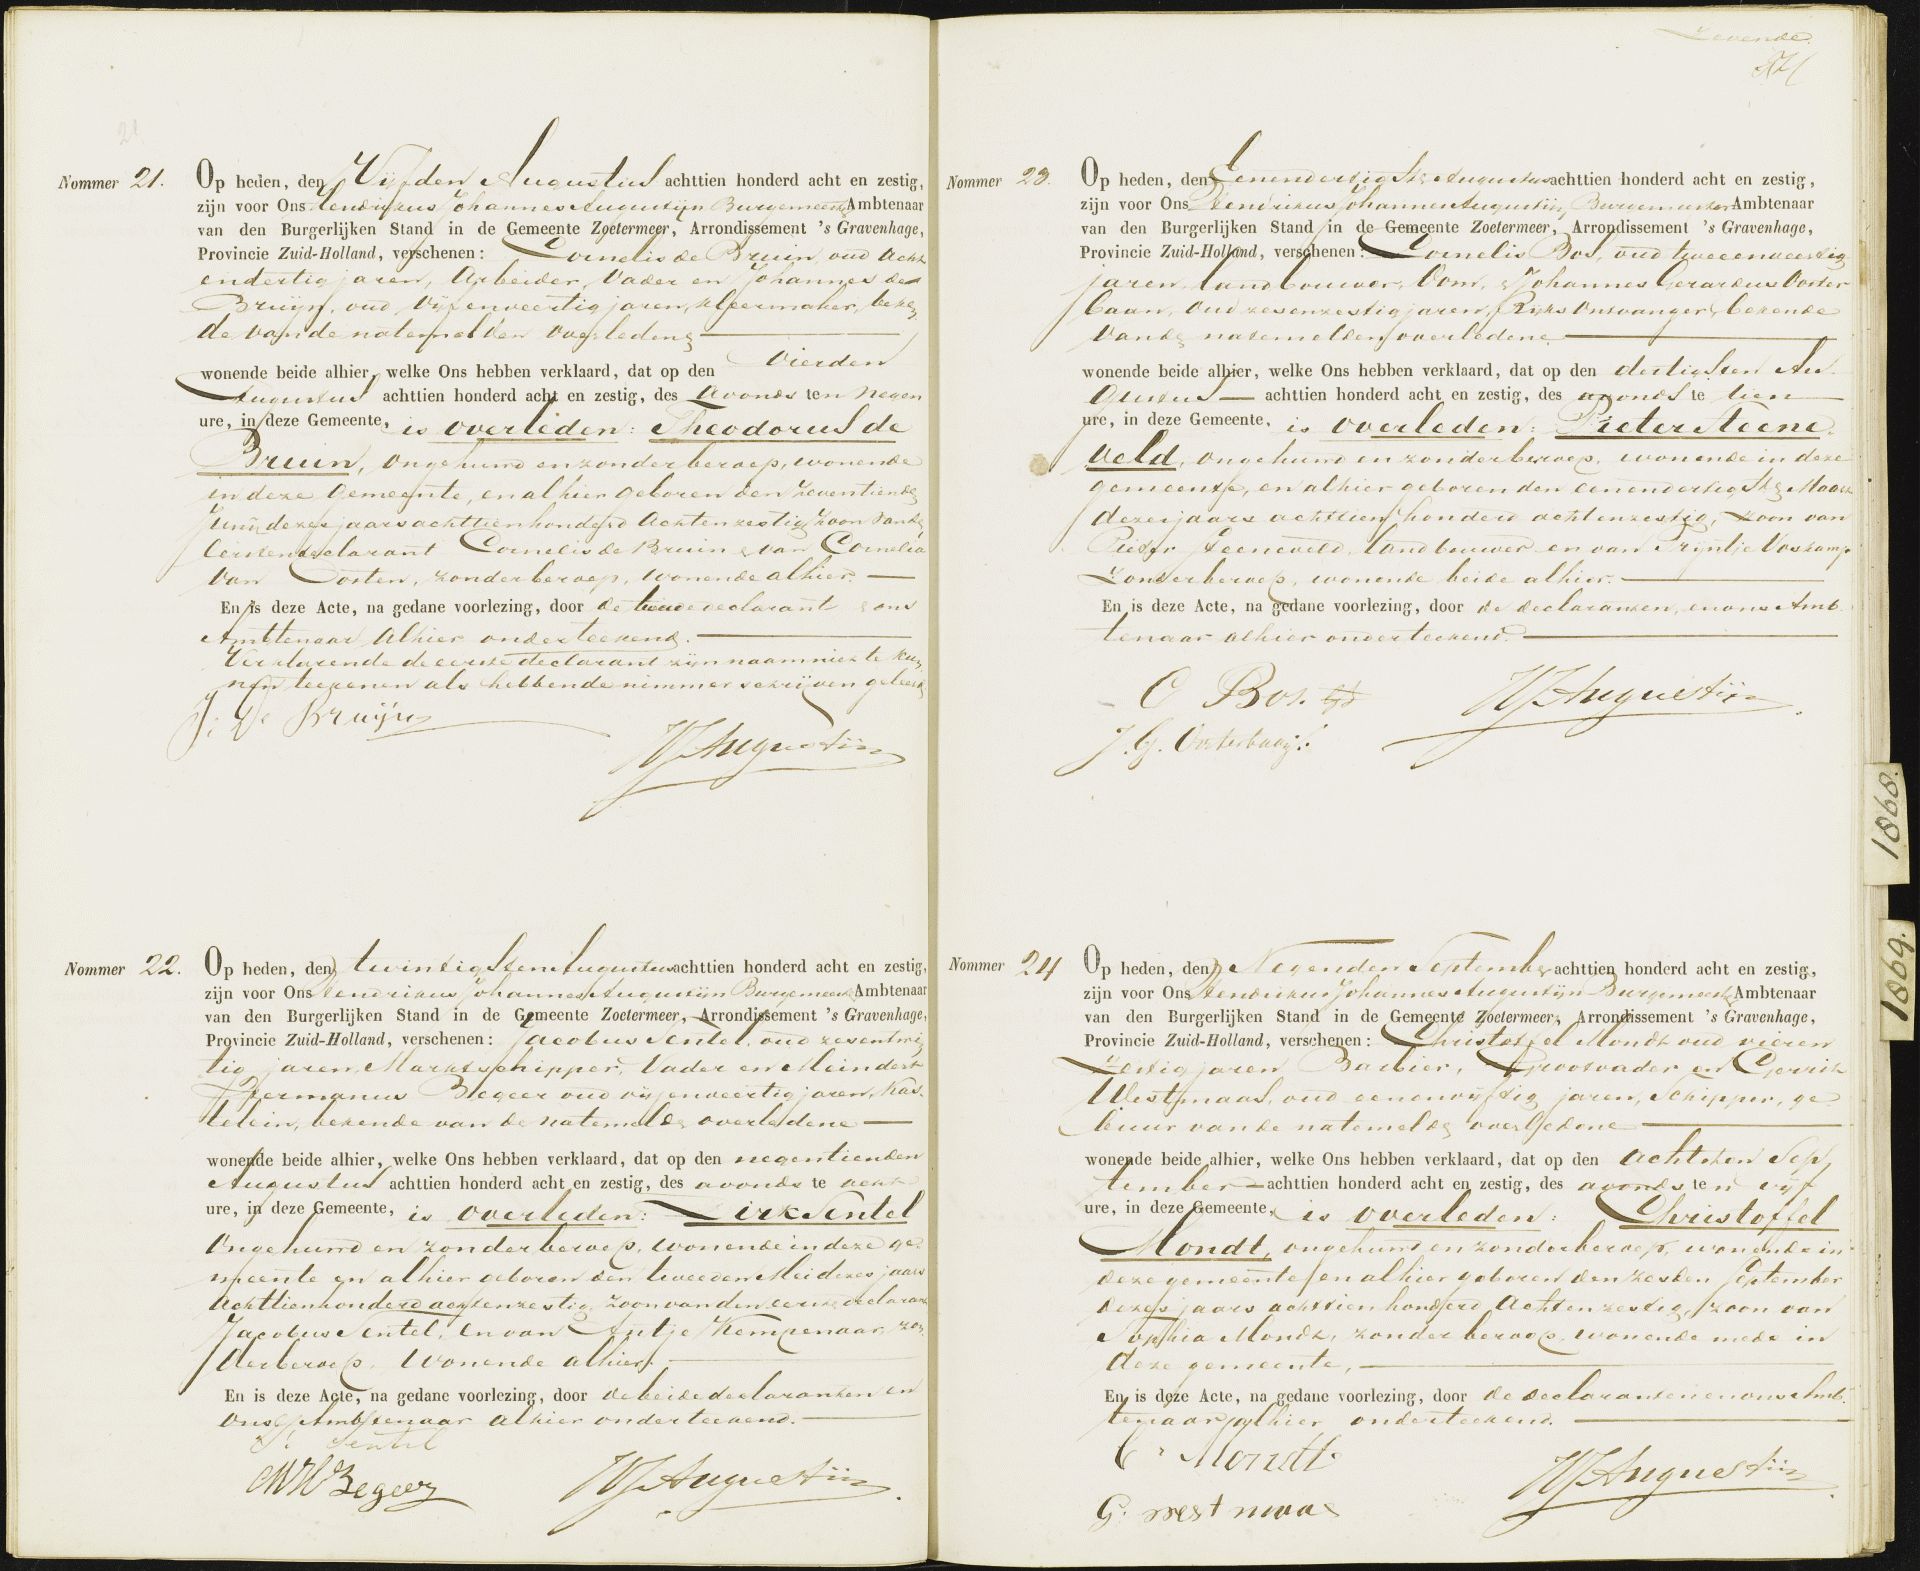 Zevende
21
Nommer 21.
Op heden, den Vijfden Augustus achttien honderd acht en zestig,
zijn voor Ons Hendrikus Johannes Augustijn Burgemeester Ambtenaar
van den Burgerlijken Stand in de Gemeente Zoetermeer, Arrondissement 's Gravenhage,
Provincie Zuid-Holland, verschenen: Cornelis de Bruin, oud acht
endertig jaren, Arbeider, Vader en Johannes de
Bruijn, oud vijfenveertig jaren, kleermaker, beken
de van de natemelden overledene
wonende beide alhier, welke Ons hebben verklaard, dat op den Vierden
Augustus achttien honderd acht en zestig, des avonds ten negen
ure, in deze Gemeente, is overleden: Theodorus de
Bruin, ongehuwd en zonder beroep, wonende
in deze Gemeente, en alhier geboren den zeventiende
Junij dezes jaars achttienhonderd achtenzestig, zoon van de
eersten declarant Cornelis de Bruin & van Cornelia
van Oosten, zonder beroep, wonende alhier.
En is deze Acte, na gedane voorlezing, door de tweede declarant & ons
Ambtenaar alhier onderteekend.
Verklarende de eerste declarant zijn naam niet te kun
nen teekenen als hebbende nimmer schrijven geleerd
J: De Bruijn
HJAugustijn
Nommer 22.
Op heden, den twintigsten Augustus achttien honderd acht en zestig,
zijn voor Ons Hendrikus Johannes Augustijn Burgemeester Ambtenaar
van den Burgerlijken Stand in de Gemeente Zoetermeer, Arrondissement 's Gravenhage,
Provincie Zuid-Holland, verschenen: Jacobus Sentel, oud zesentwin
tig jaren, Marktschipper, Vader en Meindert
Hermanus Begeer oud vijfenveertig jaren, Kas-
telein, bekende van de natemelde overledene
wonende beide alhier, welke Ons hebben verklaard, dat op den negentienden
Augustus achttien honderd acht en zestig, des avonds te acht
ure, in deze Gemeente, is overleden: Dirk Sentel
Ongehuwd en zonder beroep, wonende in deze ge-
meente en alhier geboren den tweeden Mei dezes jaars
achttienhonderd achtenzestig, zoon van den eerste declarant
Jacobus Sentel, en van Antje Kempenaar, zon
der beroep, wonende alhier.
En is deze Acte, na gedane voorlezing, door de beide declaranten en
ons Ambtenaar alhier onderteekend.
Sentel
MHBegeer
HJAugustijn
Nommer 23.
Op heden, den Eenendertigste Augustus achttien honderd acht en zestig,
zijn voor Ons Hendrikus Johannes Augustijn Burgemeester Ambtenaar
van den Burgerlijken Stand in de Gemeente Zoetermeer, Arrondissement 's Gravenhage,
Provincie Zuid-Holland, verschenen: Cornelis Bos, oud tweeenveertig
jaren, landbouwer, Oom, & Johannes Gerardus Ooster
baan, oud zesenzestig jaren, Rijks Ontvanger, bekende
van de natemelden overledene
wonende beide alhier, welke Ons hebben verklaard, dat op den dertigsten Au-
gustus achttien honderd acht en zestig, des avonds te tien
ure, in deze Gemeente, is overleden: Pieter Steene-
veld, ongehuwd en zonder beroep, wonende in deze
gemeente, en alhier geboren den eenendertigste Maart
dezes jaars achttien honderd achtenzestig, zoon van
Pieter Steeneveld, landbouwer en van Trijntje Voskamp
Zonder beroep, wonende beide alhier.
En is deze Acte, na gedane voorlezing, door de declaranten, en ons Amb-
tenaar alhier onderteekend.
C Bos.
J. G. Oosterbaan.
HJAugustijn
Nommer 24
Op heden, den Negenden September achttien honderd acht en zestig,
zijn voor Ons Hendrikus Johannes Augustijn Burgemeester Ambtenaar
van den Burgerlijken Stand in de Gemeente Zoetermeer, Arrondissement 's Gravenhage,
Provincie Zuid-Holland, verschenen: Christoffel Mondt oud vieren
Zestig jaren, Barbier, Grootvader en Gerrit
Westmaas, oud eenenvijftig jaren, Schipper, ge-
buur van de natemelde overledene
wonende beide alhier, welke Ons hebben verklaard, dat op den achtsten Sep
tember achttien honderd acht en zestig, des avonds ten vijf
ure, in deze Gemeente, is overleden: Christoffel
Mondt, ongehuwd en zonder beroep, wonende in
deze gemeente en alhier geboren den zesden September
dezes jaars achttien honderd achtenzestig, zoon van
Sophia Mondt, zonder beroep, wonende mede in
deze gemeente,
En is deze Acte, na gedane voorlezing, door de declaranten en ons Amb-
tenaar alhier onderteekend.
C. Mondt
G: westmaas
HJAugustijn
1868.
1869.